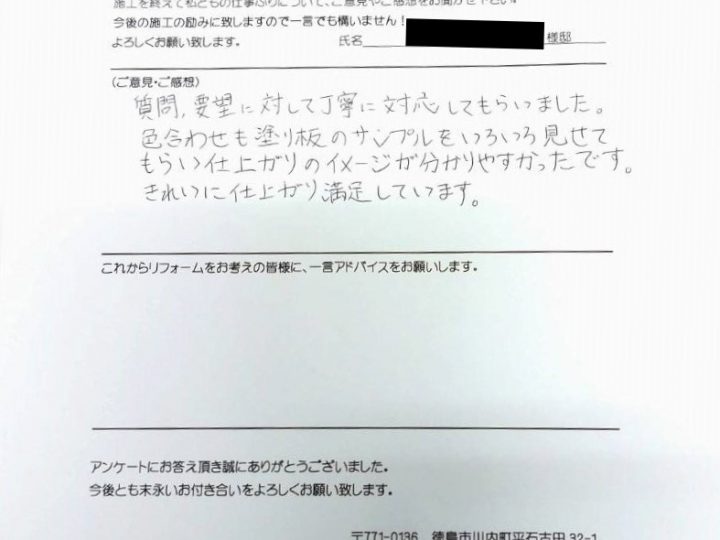 施工を終えて私どもの仕事ぶりについて、ご意見やご感想をお聞かせ下さい。
今後の施工の励みに致しますので一言でも構いません！
よろしくお願い致します。 氏名 様邸
(ご意見・ご感想)
質問,要望に対して丁寧に対応してもらいました。
色合わせも塗り板のサンプルをいろいろ見せて
もらい仕上がりのイメージが分かりやすかったです。
きれいに仕上がり満足しています。
これからリフォームをお考えの皆様に、一言アドバイスをお願いします。
アンケートにお答え頂き誠にありがとうございました。
今後とも末永いお付き合いをよろしくお願い致します。
〒771-0136 徳島市川内町平石古田 32-1